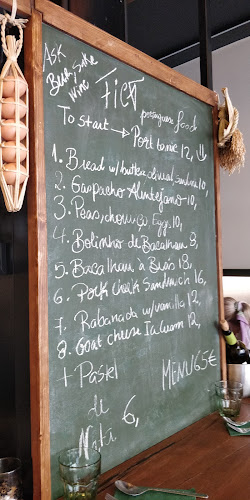 ASK
Beat, Some
Wine
FICA
portuguese food
To start → Port tonic 12,
1. Bread w/ butter & smoked sardine 10,
2. Gaspacho Alentejano 10,
3. Peas, chouriço, Egg 10,
4. Bolinho de Bacalhau 8,
5. Bacalhau à Brás 18,
6. Pork cheek Sandwich 16,
7. Rabanada w/ vanilla 12,
8. Goat cheese Ice cream 12,
+ Pastel
de
Nata
6,
MENU 65€